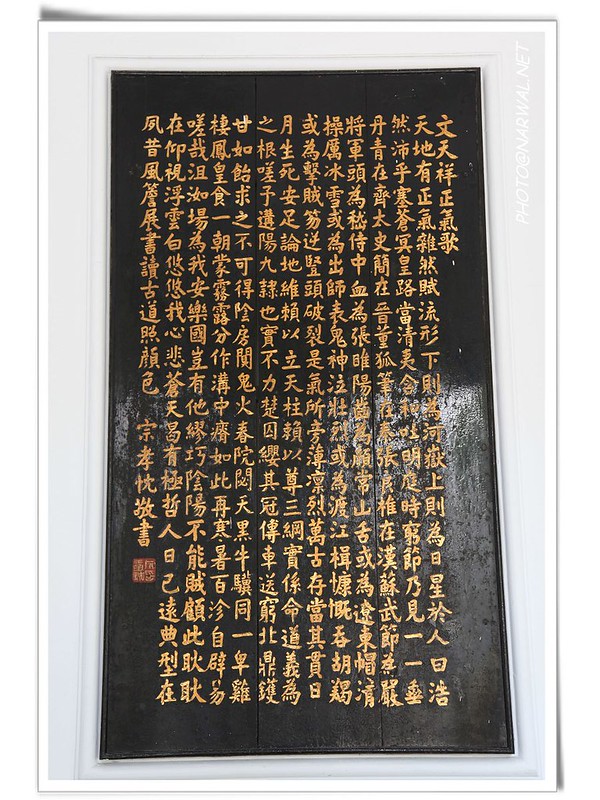 文天祥正氣歌
天地有正氣雜然賦流形下則為河嶽上則為日星於人曰浩
然沛乎塞蒼冥皇路當清夷含和吐明庭時窮節乃見一一垂
丹青在齊太史簡在晉董狐筆在秦張良椎在漢蘇武節為嚴
將軍頭為嵇侍中血為張睢陽齒為顏常山舌或為遼東帽清
操厲冰雪或為出師表鬼神泣壯烈或為渡江楫慷慨吞胡羯
或為擊賊笏逆豎頭破裂是氣所旁薄凜烈萬古存當其貫日
月生死安足論地維賴以立天柱賴以尊三綱實係命道義為
之根嗟予遘陽九隸也實不力楚囚纓其冠傳車送窮北鼎鑊
甘如飴求之不可得陰房闃鬼火春院閟天黑牛驥同一皁雞
棲鳳皇食一朝蒙霧露分作溝中瘠如此再寒暑百沴自辟易
嗟哉沮洳場為我安樂國豈有他繆巧陰陽不能賊顧此耿耿
在仰視浮雲白悠悠我心悲蒼天曷有極哲人日已遠典型在
夙昔風簷展書讀古道照顏色 宗孝忱敬書
PHOTO@NARWAL.NET